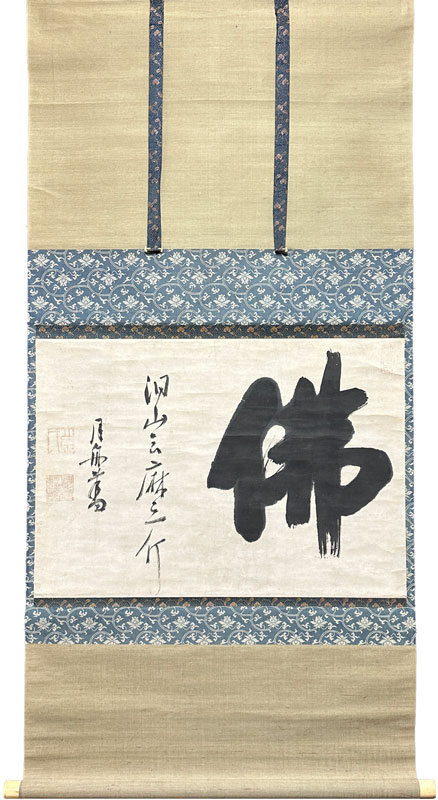 佛
洞山云麻三斤
月舟